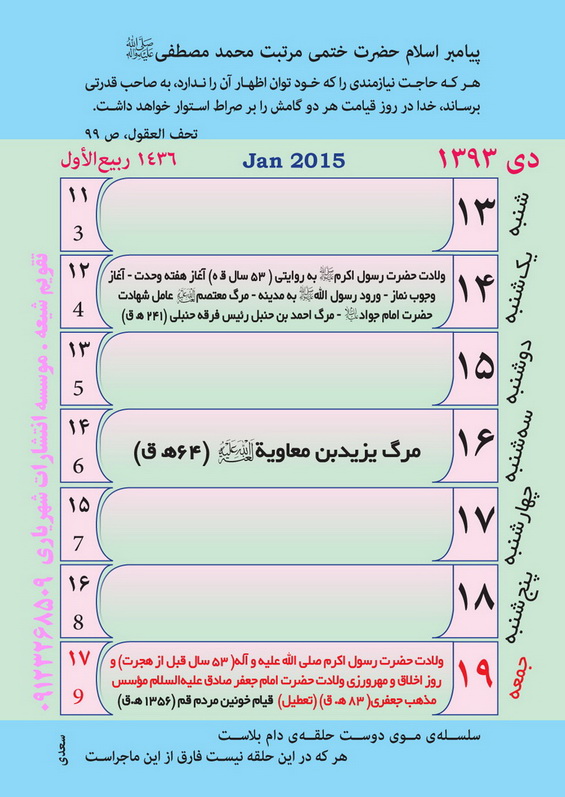 پیامبر اسلام حضرت ختمی مرتبت محمد مصطفیﷺ
هر که حاجت نیازمندی را که خود توان اظهار آن را ندارد، به صاحب قدرتی
برساند، خدا در روز قیامت هر دو گامش را بر صراط استوار خواهد داشت.
تحف العقول، ص ۹۹
دی ۱۳۹۳
Jan 2015
۱۴۳۶ ربیع‌الأول
شنبه
۱۳
۱۱
3
یک‌شنبه
۱۴
ولادت حضرت رسول اکرمﷺ به روایتی ( ۵۳ سال ق ه) آغاز هفته وحدت - آغاز
وجوب نماز - ورود رسول اللهﷺ به مدینه - مرگ معتصم عامل شهادت
حضرت امام جواد - مرگ احمد بن حنبل رئیس فرقه حنبلی (۲۴۱ ه ق)
۱۲
4
دوشنبه
۱۵
۱۳
5
سه‌شنبه
۱۶
مرگ یزیدبن معاویة لعنةالله‌علیه (۶۴ه ق)
۱۴
6
چهارشنبه
۱۷
۱۵
7
پنج‌شنبه
۱۸
۱۶
8
جمعه
۱۹
ولادت حضرت رسول اکرم صلی الله علیه و آله( ۵۳ سال قبل از هجرت) و
روز اخلاق و مهرورزی ولادت حضرت امام جعفر صادق علیه‌السلام مؤسس
مذهب جعفری( ۸۳ ه. ق) (تعطیل) قیام خونین مردم قم (۱۳۵۶ ه.ق)
۱۷
9
تقویم شیعه . موسسه انتشارات شهریاری ۰۹۱۲۳۲۶۸۵۰۹
سلسله‌ی موی دوست حلقه‌ی دام بلاست
هر که در این حلقه نیست فارق از این ماجراست
سعدی